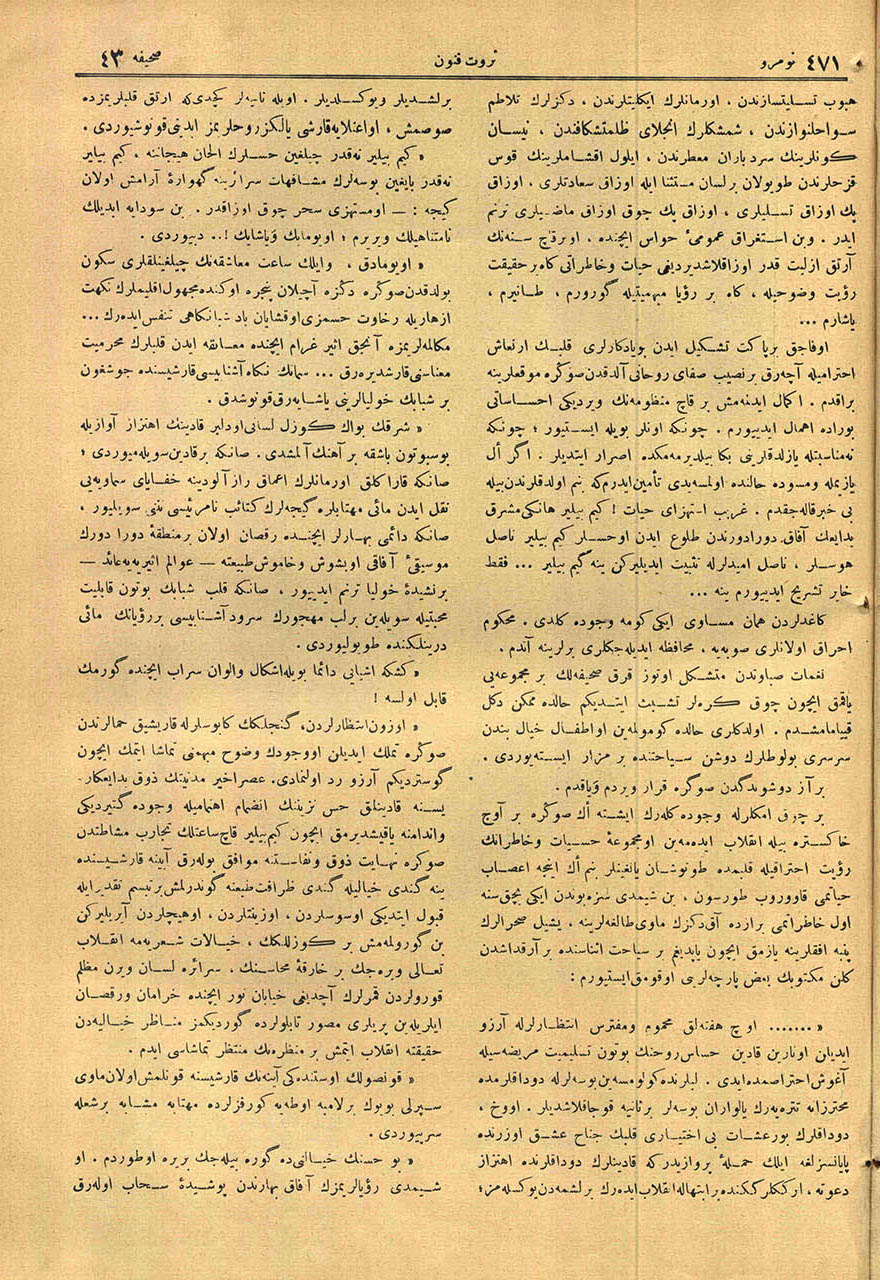 نومرو ٤٧١
ثروت فنون
صحیفه ٤٣
هبوب تسلیتسازندن ، اورمانلرك ایكلیتلرندن ، دكزلرك تلاطم
سواحلنوازندن ، شمشكلرك انجلای ظلمتشكافندن ، نیسان
كونلرینك سرد باران معطرندن ، ایلول اقشاملرینك قوس
قزحلرندن طویولان بر لسان مستثنا ایله اوزاق سعادتلری ، اوزاق
پك اوزاق تسلیلری ، اوزاق پك چوق اوزاق ماضیلری ترنم
ایدر . وبن استغراق عمومئ حواس ایچنده ، اوبرقاچ سنه‌نك
آرتق ازلیت قدر اوزاقلاشدیردیغی حیات وخاطراتی كاه بر حقیقت
رؤیت وضوحیله ، كاه بر رؤیا مبهمیتیله گورورم ، طانیرم ،
یاشارم ...
اوفاجق برپاكت تشكیل ایدن بویادكارلری قلبك ارتعاش
احترامیله آچه‌رق برنصیب صفای روحانی آلدقدن صوكره موقعلرینه
براقدم . اكمال ایدنه‌مش بر قاچ منظومه‌نك ویردیكی احساساتی
بوراده اهمال ایدییورم . چونكه اونلر بویله ایستیور ؛ چونكه
نه‌مناسبتله یازلدقلرینی بكا بیلدیرمه‌مكده اصرار ایتدیلر . اگر أل
یازیمله ومسوده حالنده اولمسه‌یدی تأمین ایدرم‌كه بنم اولدقلرندن بیله
بی خبر قاله‌جقدم . غریب استهزای حیات ! كیم بیلیر هانكی مشرق
بدایعك آفاق دورادورندن طلوع ایدن اوحسلر كیم بیلیر ناصل
هوسلر ، ناصل امیدلرله تثبیت ایدیلیركن ینه كیم بیلیر ... فقط
خایر تشریح ایدییورم ینه ...
كاغدلردن همان مساوی ایكی كومه وجوده كلدی . محكوم
احراق اولانلری صوبه‌یه ، محافظه ایدیله‌جكلری یرلرینه آتدم .
نغمات صباوندن متشكل اوتوز قرق صحیفه‌لك بر مجموعه‌یی
یاقمق ایچون چوق كره‌لر تشبث ایتدیكم حالده ممكن دكل
قییامامشدم . اولدكلری حالده كومولمه‌ین اواطفال خیال بندن
سرسری بولوطلرك دوشن سیاحتنده بر مزار ایسته‌یوردی .
بر آز دوشوندكدن صوكره قرار ویردم ویاقدم .
بر چوق امكلرله وجوده كله‌رك ایشته أك صوكره بر آوج
خاكستره بیله انقلاب ایده‌مه‌ین اومجموعهٔ حسیات وخاطراتك
رؤیت احتراقیله قلبمده طوتوشان یانغینلر بنم أك اینجه اعصاب
حیاتمی قاووروب طورسون ، بن شیمدی سزه‌بوندن ایكی بچق سنه
اول خاطراتمی برازده آق‌دكزك ماوی طالغه‌لرینه ، یشیل صحرالرك
پنبه افقلرینه یازمق ایچون یاپدیغم بر سیاحت اثناسنده بر آرقداشدن
كلن مكتوبك بعض پارچه‌لرینی اوقومق ایستیورم :
« ....... اوچ هفته‌لق محموم ومفترس انتظارلرله آرزو
ایدیلن اونارین قادین حساس روحنك بوتون تسلیمیت مریضه‌سیله
آغوش احتراصمده‌ایدی . لبلرنده كولومسه‌ین بوسه‌لرله دوداقلرمده
محترزانه تتره‌یه‌رك یالواران بوسه‌لر برثانیه قوجاقلاشدیلر . اووخ ،
دوداقلرك بورعشات بی اختیاری قلبك جناح عشق اوزرنده
پایانسزلغه ایلك حملهٔ پروازیدركه قادینلرك دوداقلرنده اهتزاز
دعوته ، ارككلرككنده برابتهاله انقلاب ایده‌رك برلشمه‌دن یوكسله‌مز ؛
برلشدیلر ویوكسلدیلر . اویله ثانیه‌لر كچدی‌كه آرتق قلبلریمزده
صوصمش ، اواعتلایه قارشی یالكز روحلریمز ابدینی قونوشیوردی .
« كیم بیلیر نه‌قدر چیلغین حسلرك الحان هیجاننه ، كیم بیلیر
نه‌قدر بایغین بوسه‌لرك مشافهات سرائرینه گهوارهٔ آرامش اولان
كیجه : — اومستهزی سحر چوق اوزاقدر . بن سودایه ابدیلك
نامتناهیلك ویررم ؛ اویومایك ویاشایك !.. دییوردی .
« اویومادق ، وایلك ساعت معاشقه‌نك چیلغینلقلری سكون
بولدقدن صوكره دكزه آچیلان پنجره اوكنده مجهول اقلیملرك نكهت
ازهاریله رخاوت حسمزی اوقشایان باد شبانكاهی تنفس ایده‌رك ...
مكالمه‌لریمزه آنجق اثیر غرام ایچنده معانقه ایدن قلبلرك محرمیت
معناسنی قارشدیره‌رق ... سمانك نكاه آشنایسی قارشیسنده جوشغون
بر شبابك خولیالرینی یاشایه‌رق قونوشدق .
« شرقك بواك گوزل لسانی اودلبر قادینك اهتزاز آوازیله
بوسبوتون باشقه بر آهنك آلمشدی . صانكه بر قادین سویله‌میوردی ؛
صانكه قارا كلق اورمانلرك اعماق راز آلودینه خفایای سماویه‌یی
نقل ایدن مائی مهتابلره گیجه‌لرك كتائب نامرئیسی نینی سویلیور ،
صانكه دائمی بهارلر ایچنده رقصان اولان برمنطقهٔ دورا دورك
موسیقئ آفاقی اویشوش وخاموش طبیعته — عوالم اثیریه‌یه عائد —
برنشیدهٔ خولیا ترنم ایدییور ، صانكه قلب شبابك بوتون قابلیت
محبتیله سویله‌ین برلب مهجورك سرود آشنابیسی بررؤیانك مائی
درینلكنده طویولیوردی .
« كشكه اشیایی دائما بویله‌اشكال والوان سراب ایچنده گورمك
قابل اولسه !
« اوزون انتظارلردن، گنجلكك كابوسلرله قاریشیق حمالرندن
صوكره تملك ایدیلن اووجودك وضوح مبهمنی تماشا ایتمك ایچون
گوستردیكم آرزو رد اولنمادی. عصر اخیر مدنیتك ذوق بدایعكار-
یسنه قادینلق حس تزیینك انضمام اهتمامیله وجوده گتیردیكی
واندامنه یاقیشدیرمق ایچون كیم‌بیلیر قاچ ساعتلك تجارب مشاطه‌دن
صوكره نهایت ذوق ونفاستنه موافق بوله‌رق آیینه قارشیسنده
ینه گندی خیالیله گندی ظرافت طبعنه گوندرلمش برتبسم تقدیرایله
قبول ایتدیكی اوسوسلردن ، اوزینتلردن ، اوهیچلردن آیریلیركن
بن گورولمه‌مش بر گوزللكك ، خیالات شعریه‌مه انقلاب
تعالی ویره‌جك بر خارقهٔ محاسنك ، سرائره لسان ویرن مظلم
قورولردن قمرلرك آچدیغی خیابان نور ایچنده خرامان ورقصان
ایلریله‌ین پریلری مصور تابلولرده گوردیكمز مناظر خیالیه‌دن
حقیقته انقلاب ایتمش بر منظره‌نك منتظر تماشاسی ایدم .
« قونصولك اوستنده‌كی آیینه‌نك قارشیسنه قونلمش اولان ماوی
سپرلی بویوك برلامبه اوطه‌یه كورفزلرده مهتابه مشابه برشعله
سرپیوردی .
« بو حسنك خیالنی ده گوره بیله‌جك بریره اوطوردم . او
شیمدی رؤیالریمزك آفاق بهارندن پوشیدهٔ سحاب اوله‌رق